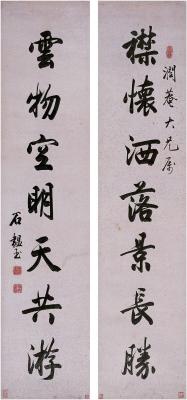 襟懷洒落景長勝
潤菴大兄屬
雲物空明天共游
石韞玉